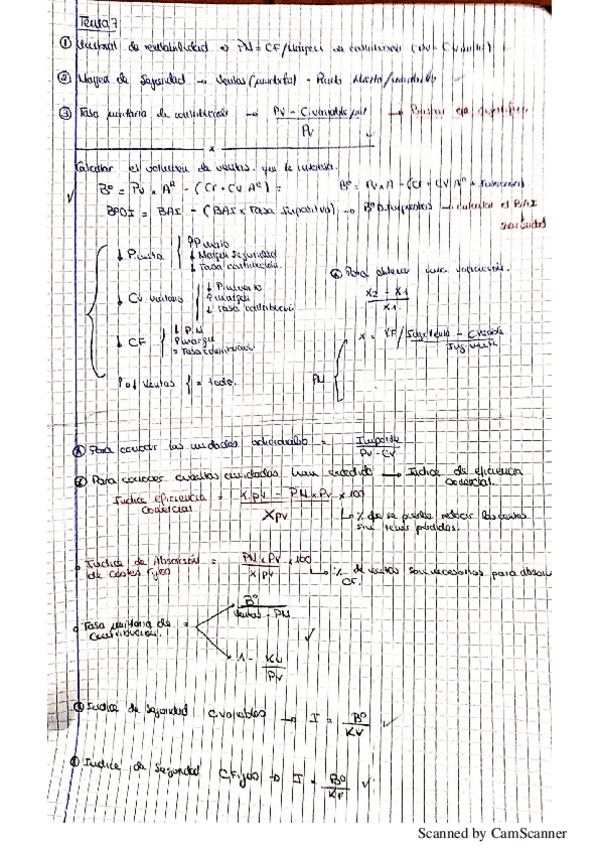 Tema 7
① Umbral de rentabilidad → PM = CF / Margen de contribución
② Margen de Seguridad → Ventas - Punto Muerto
③ Tasa unitaria de contribución → Pv - C.variable unit / Pv → Buscar
x
Calcular el volumen de ventas que le interesa.
Bº = Pv x A - (CF + CV A) = Bº = Pv x A - (CF + CV A
BºDI = BAI - (BAI x Tasa impositiva) → Bº D.impuestos → calcular el BAI
↓ P.venta
↑ P.muerto
↓ Margen Seguridad
↓ Tasa contribución.
Para obtener una variación.
X2 - X1 / X1
↓ CV unitario
↓ P.muerto
↑ margen
Tasa contribución
↓ CF
↓ P.M
↑ margen
= Tasa contribución
X = KF /
PM
P o ↓ Ventas = todo.
Para conocer las unidades adicionales = Importe / Pv - Cv
Para conocer cuántas unidades han excedido → Indice de eficiencia comercial.
Indice eficiencia comercial = X pv - PM x Pv x 100 / X pv
↳ % de se puede reducir las ventas sin tener pérdidas.
Indice de Absorción de costes Fijos = PM x Pv x 100 / X pv
↳ % de ventas son necesarias para absorber CF.
Tasa unitaria de contribución =
Bº / Ventas - PM
1 - KV / PV
Indice de Seguridad C variables → I = Bº / KV
Indice de Seguridad C Fijos → I = Bº / KF
Scanned by CamScanner